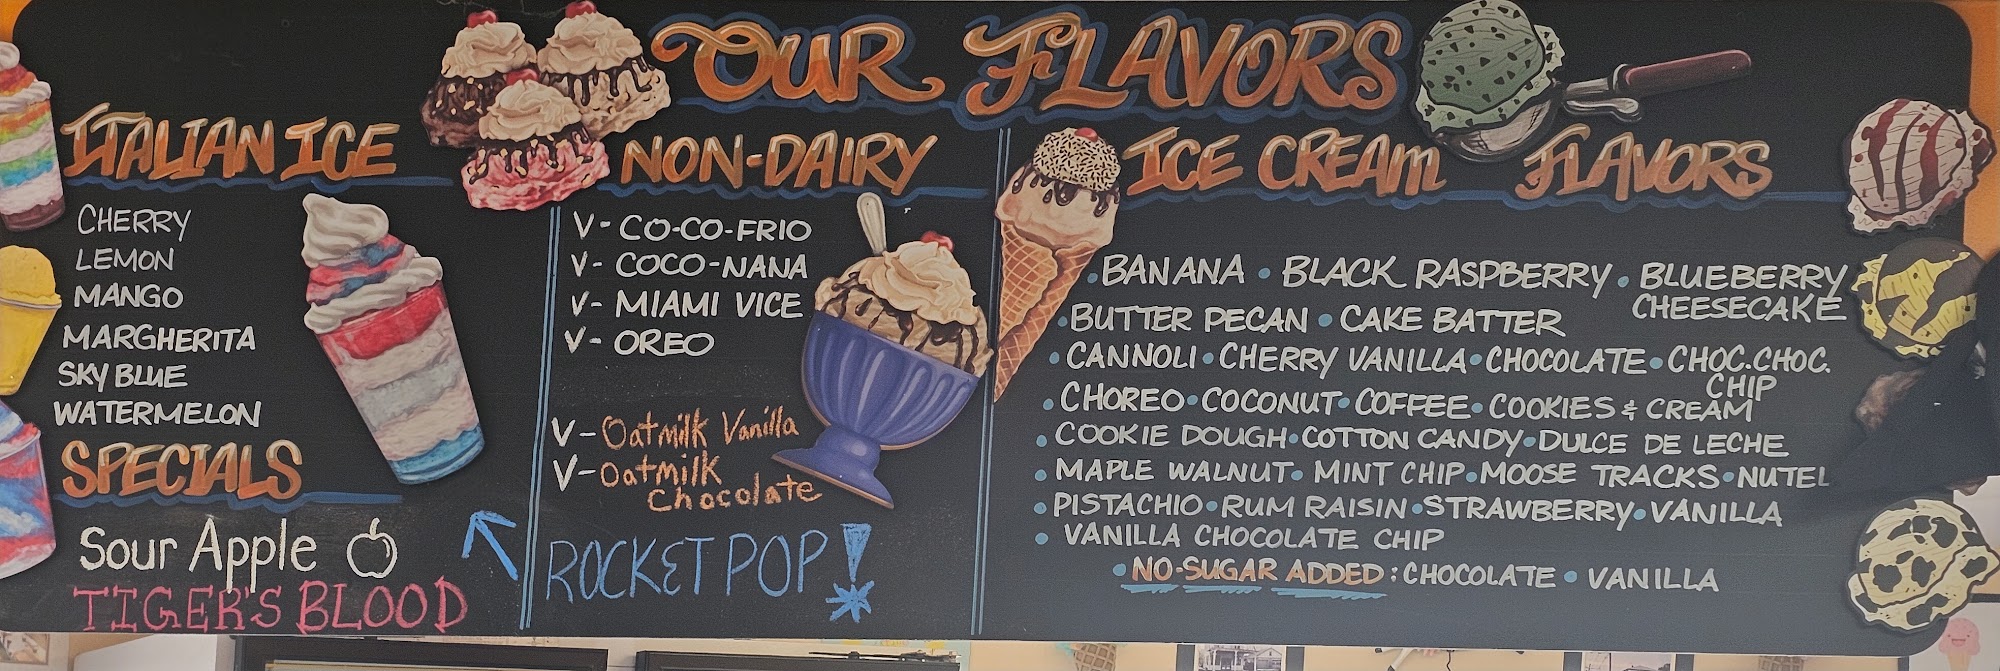 OUR FLAVORS
ITALIAN ICE
CHERRY
LEMON
MANGO
MARGHERITA
SKY BLUE
WATERMELON
SPECIALS
Sour Apple
TIGER'S BLOOD
NON-DAIRY
V- CO-CO-FRIO
V- COCO-NANA
V- MIAMI VICE
V- OREO
V- Oatmilk Vanilla
V- Oatmilk
Chocolate
ROCKET POP!
ICE CREAM FLAVORS
• BANANA • BLACK RASPBERRY • BLUEBERRY
CHEESECAKE
• BUTTER PECAN • CAKE BATTER
• CANNOLI • CHERRY VANILLA • CHOCOLATE • CHOC. CHOC.
CHIP
• CHOREO • COCONUT • COFFEE • COOKIES & CREAM
• COOKIE DOUGH • COTTON CANDY • DULCE DE LECHE
• MAPLE WALNUT • MINT CHIP • MOOSE TRACKS • NUTEL
• PISTACHIO • RUM RAISIN • STRAWBERRY • VANILLA
• VANILLA CHOCOLATE CHIP
• NO-SUGAR ADDED: CHOCOLATE • VANILLA